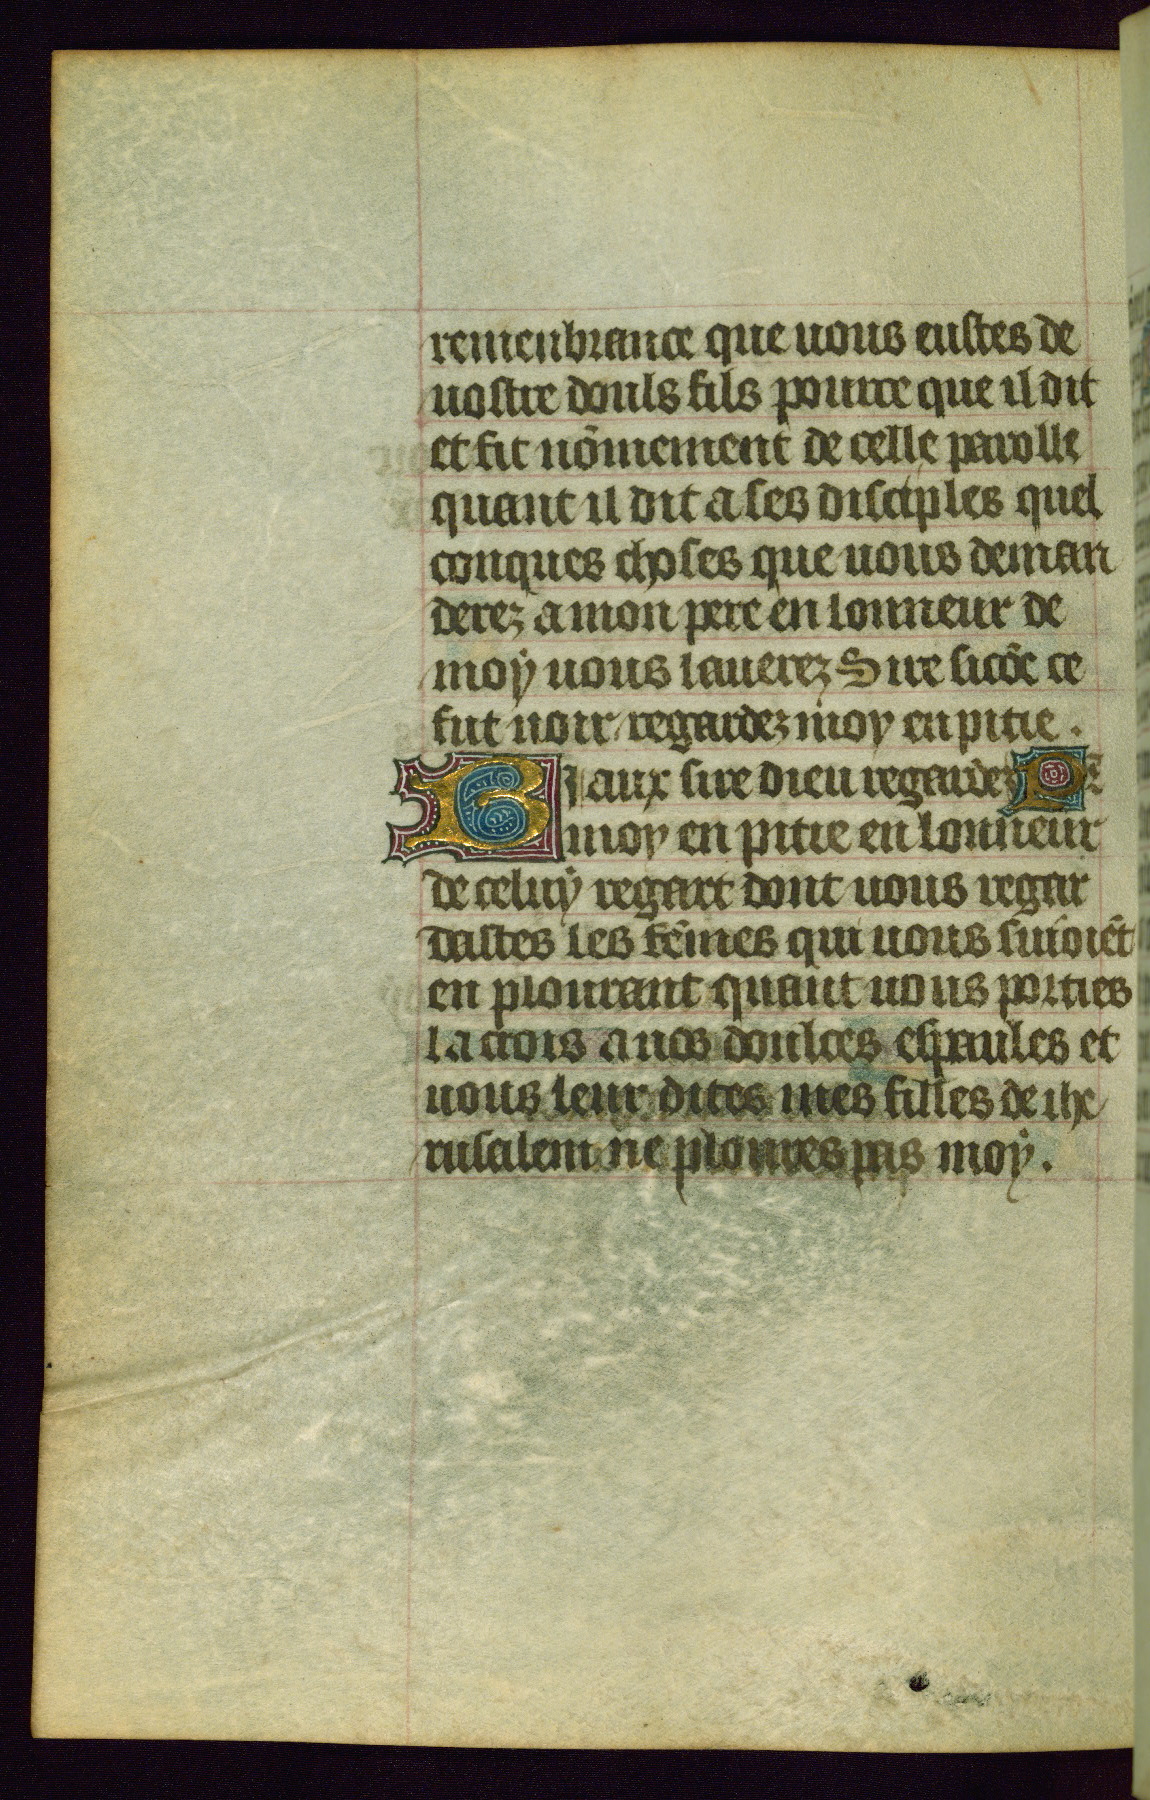 remenbrance que uous eustes de
uostre douls fils pource que il dit
et fit nōmement de celle parolle
quant il dit a ses disciples quel
conques choses que uous deman
derez a mon pere en lonneur de
moy uous lauerez Sire sicōe ce
fut uoir regardez moy en pitie.
Biaux sire dieu regardez Pr̄
moy en pitie en lonneur
de celuy regart dont uous regar
dastes les fēmes qui uous suioiēt
en plourant quant uous porties
la crois a uos doulces espaules et
uous leur dites mes filles de ihe
rusalem ne ploures pas moy.